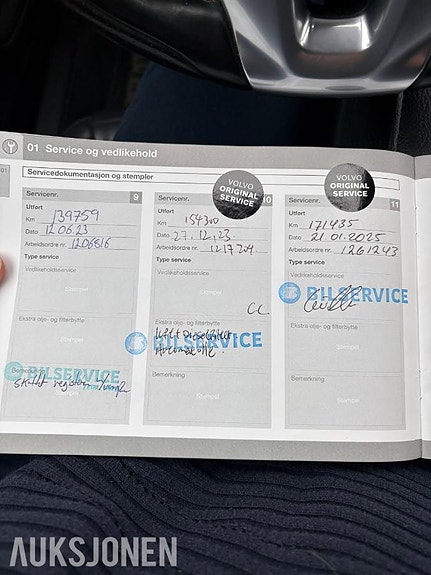 01 Service og vedlikehold
01
Servicedokumentasjon og stempler
Servicenr. 9
Utført
Km 139759
Dato 12.06.23
Arbeidsordre nr. 1206616
Type service
Vedlikeholdsservice
Stempel
Ekstra olje- og filterbytte
Stempel
BILSERVICE
skiftet register
Stempel
VOLVO
ORIGINAL
SERVICE
10
Utført
Km 154300
Dato 27.12.23
Arbeidsordre nr. 1217204
Type service
Vedlikeholdsservice
CC
Ekstra olje- og filterbytte
BILSERVICE
Bemerkning
Stempel
VOLVO
ORIGINAL
SERVICE
Servicenr. 11
Utført
Km 171435
Dato 21.01.2025
Arbeidsordre nr. 1261243
Type service
Vedlikeholdsservice
BILSERVICE
Ekstra olje- og filterbytte
Stempel
Bemerkning
Stempel
AUKSJONEN